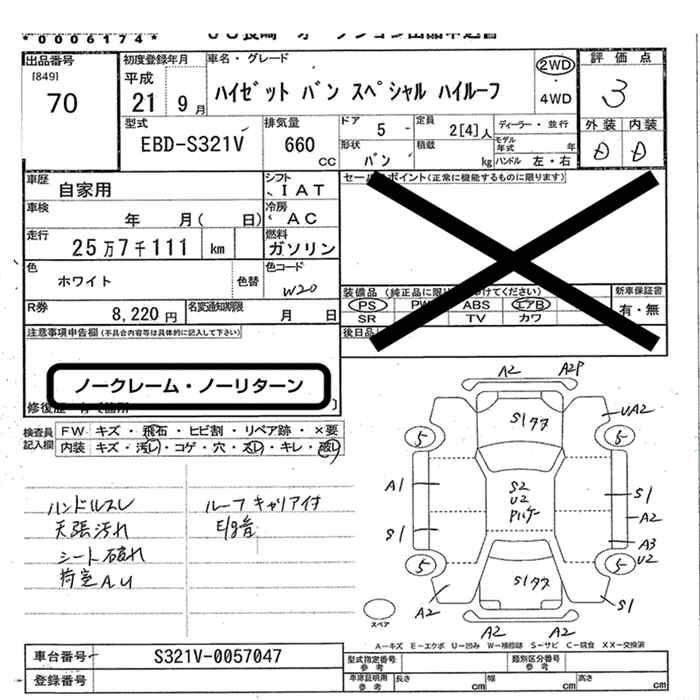 *0006174*
出品番号
[849]
70
初度登録年月
平成
21 9月
車名・グレード
ハイゼット バン スペシャル ハイルーフ
2WD
・
4WD
評価点
3
外装 内装
D D
型式
EBD-S321V
排気量
660
CC
ドア
5 -
定員
2[4]人
ディーラー・並行
モデル年式 年
形状
バン
積載
kg
ハンドル 左・右
車歴
自家用
シフト
IAT
車検
年 月( 日)
冷房
AC
走行
25万7千111 km
燃料
ガソリン
色
ホワイト
色替
色コード
W20
R券
8,220円
名変通知期限
月 日
セールスポイント(正常に機能するものに限ります)
装備品
PS ABS エアB
SR TV カワ
新車保証書
有・無
後日品
注意事項申告欄(不具合内容等は具体的に記入して下さい)
ノークレーム・ノーリターン
検査員記入欄
FW キズ・飛石・ヒビ割・リペア跡・×要
内装 キズ・汚レ・コゲ・穴・スレ・キレ・破レ
ハンドルスレ
天張汚れ
シート破れ
荷室AU
ルーフキャリア付
E/g音
A2 A2P
S1サビ
UA2
5 5
A1
S2
U2
S1
A2
S1
A3
5 5 U2
S1サビ
A2
S1
A2 A2
スペア
A-キズ E-エクボ U-凹み W-補修跡 S-サビ C-腐食 XX-交換済
車台番号
S321V-0057047
登録番号
型式指定番号
参考
類別区分番号
参考
車庫証明用
参考
長さ cm 幅 cm 高さ cm